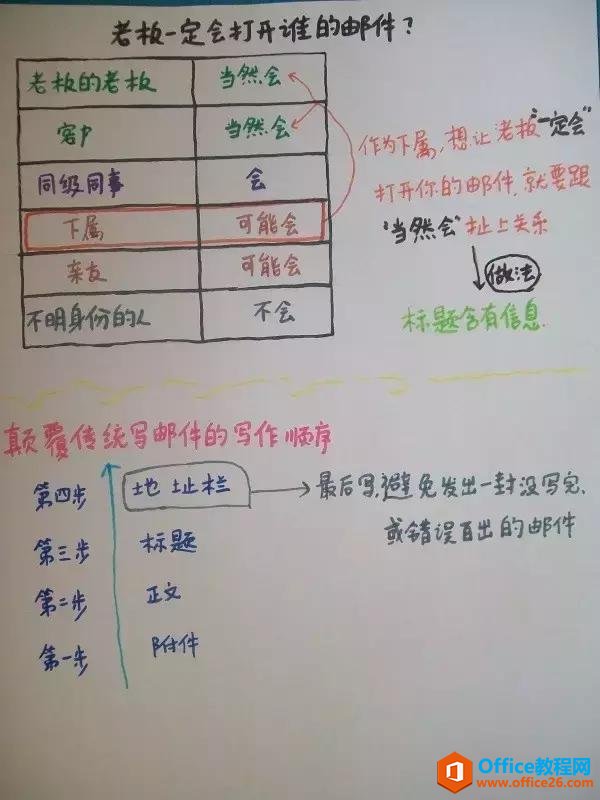 老板一定会打开谁的邮件?
老板的老板 当然会
客户 当然会
同级同事 会
下属 可能会
亲友 可能会
不明身份的人 不会
作为下属,想让老板"一定会"
打开你的邮件,就要跟
"当然会"扯上关系
做法
标题含有信息.
颠覆传统写邮件的写作顺序
第四步 地址栏 最后写,避免发出一封没写完,
或错误百出的邮件
第三步 标题
第二步 正文
第一步 附件
Office教程网
www.office26.com